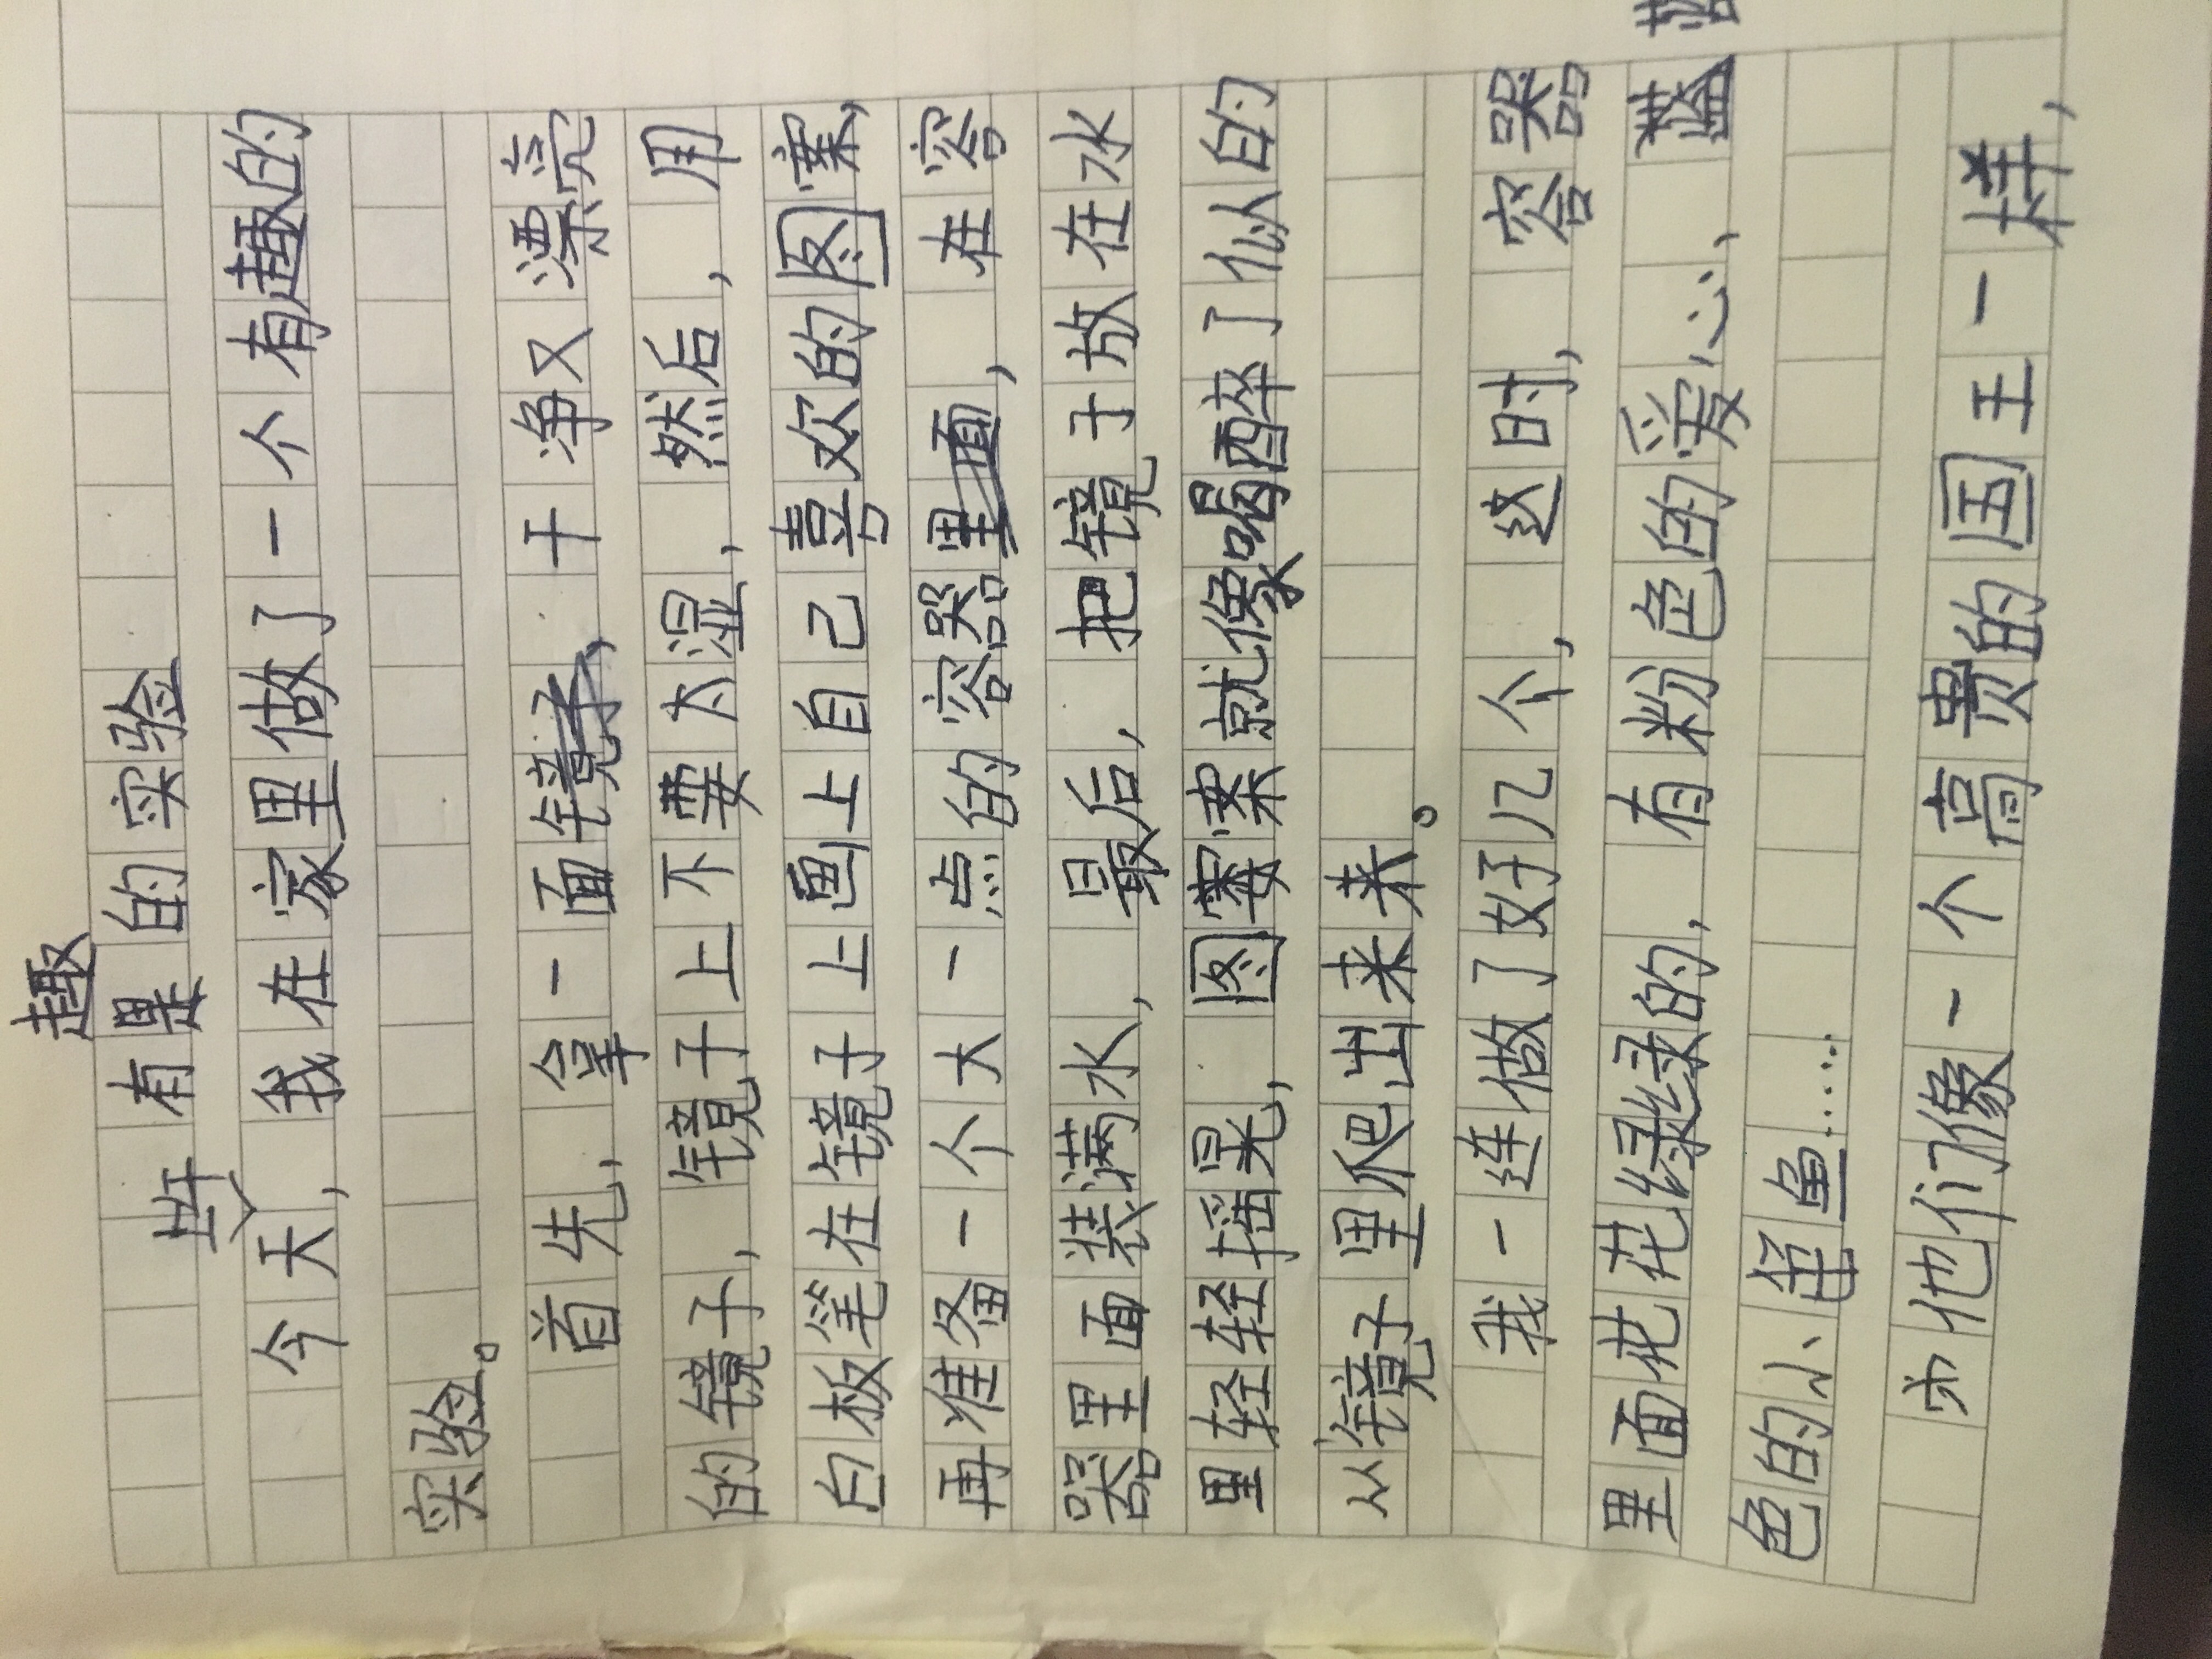 趣
有的实验
上午
今天,我在家里做了一个有趣的
实验。
首先,拿一面镜子,干净又漂亮
的镜子,镜子上不要太湿,然后,用
白板笔在镜子上画上自己喜欢的图案,
再准备一个大一点的容器里面,在容
器里面装满水,最后,把镜子放在水
里轻轻摇晃,图案案就像喝醉了似的
从镜子里爬出来来。
我一连做了好几个,这时,容器
里面花花绿绿的,有粉色的爱心,蓝
色的小鱼……
他们像一个高贵的国王一样,